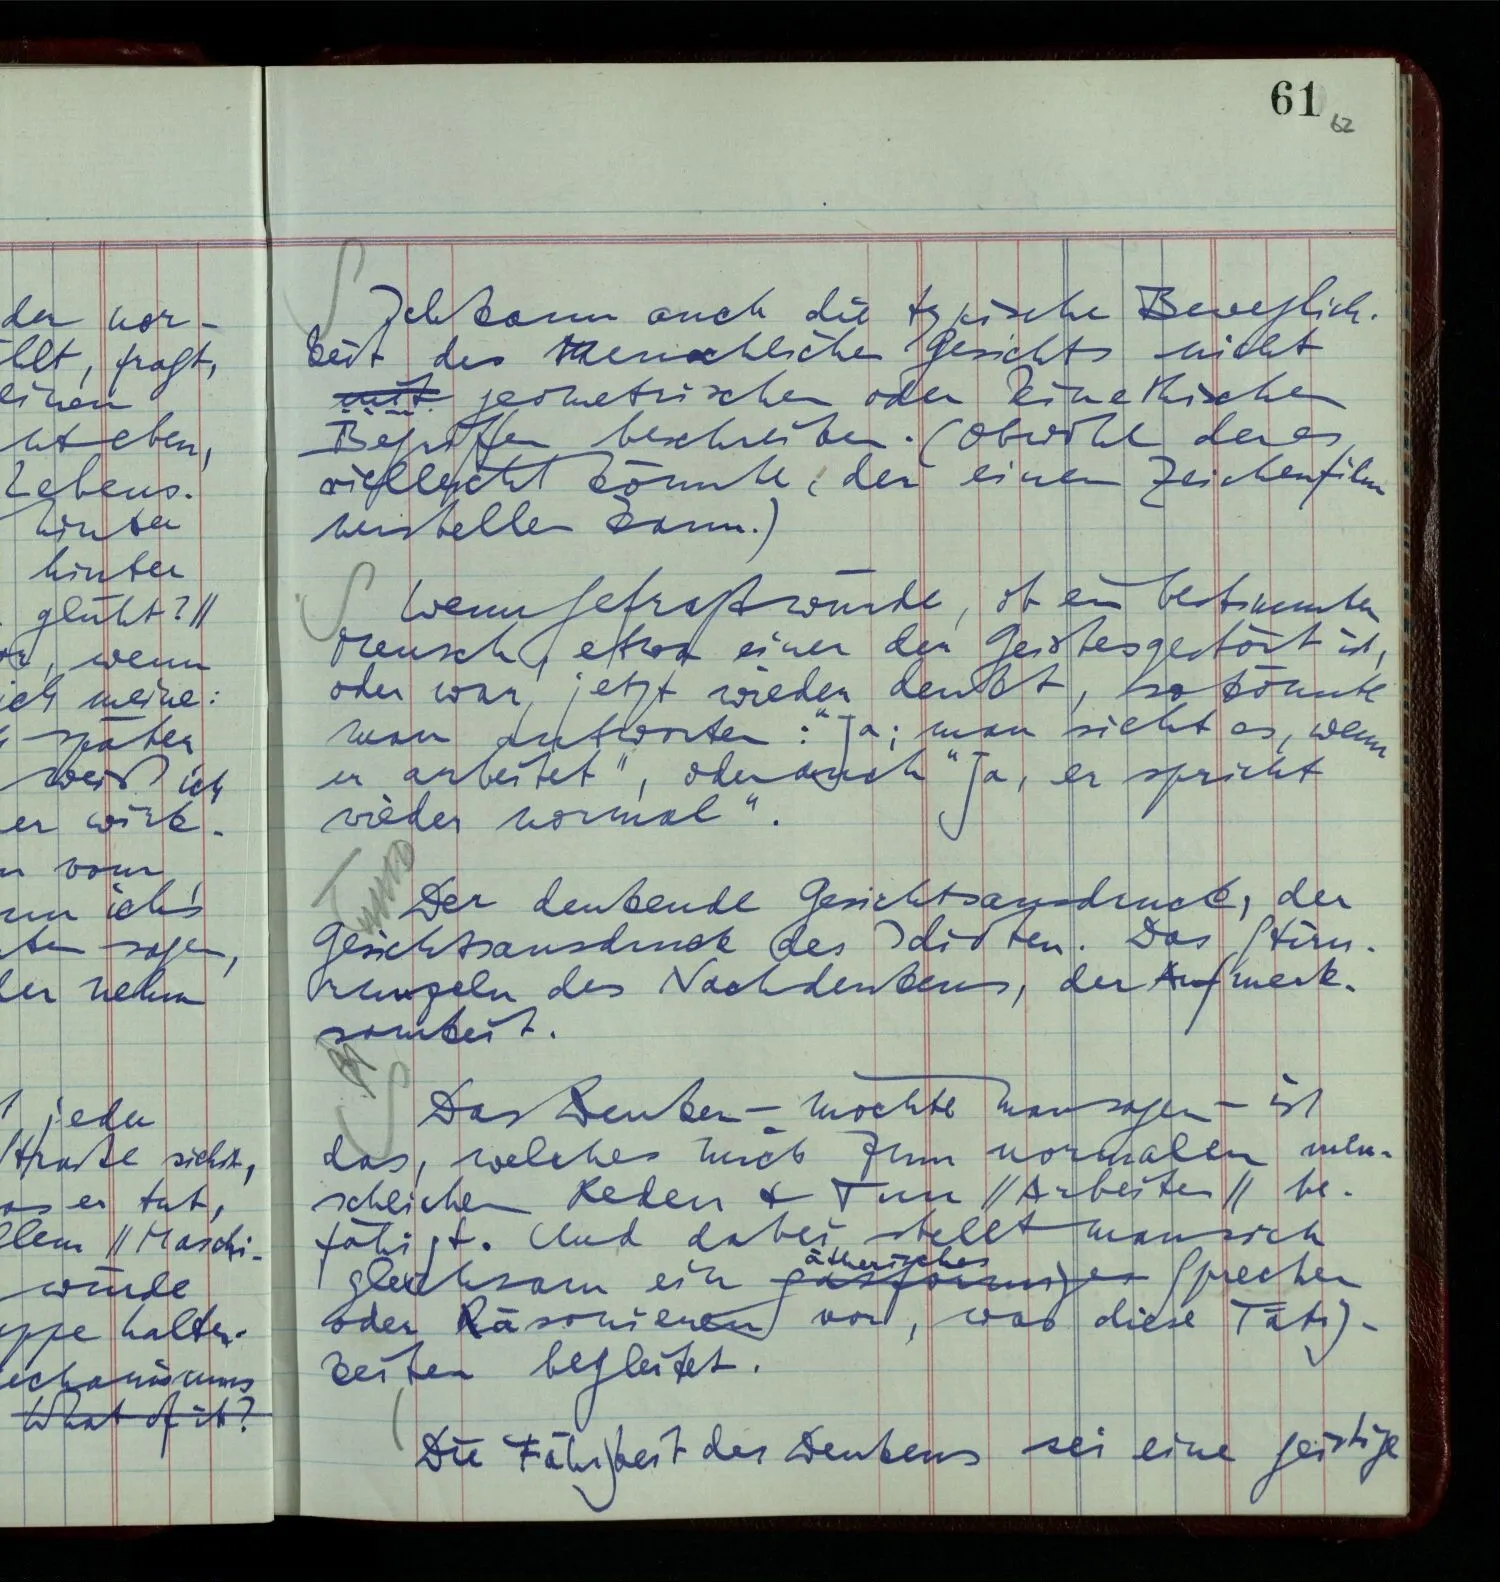 61
62
der vor-
llt, fragt,
einen
eben,
Lebens.
hinter
hinter
glüht?//
, wenn
ich meine:
später
weiß ich
er wirk-
vom
ich's
sagen,
der nehm
jeder
Straße sieht,
was er tut,
allem // Maschi-
würde
halten.
echanismus
What of it?
Ich kann auch die typische Beweglich-
keit des menschlichen Gesichts nicht
mit geometrischen oder kinethischen
Begriffen beschreiben. (Obwohl der es
vielleicht könnte, der einen Zeichenfilm
herstellen kann.)
Wenn gefragt würde, ob ein bestimmter
Mensch, etwa einer der Geistesgestört ist,
oder war, jetzt wieder denkt, so könnte
man antworten: "Ja; man sieht es, wenn
er arbeitet", oder auch "Ja, er spricht
wieder normal".
Der denkende Gesichtsausdruck, der
Gesichtsausdruck des Idioten. Das Stirn-
runzeln des Nachdenkens, der Aufmerk-
samkeit.
Das Denken – möchte man sagen – ist
das, welches mich zum normalen men-
schlichen Reden & Tun // Arbeiten // be-
fähigt. Und dabei stellt man sich
ätherisches
gleichsam ein gasförmiges Sprechen
oder Räsonieren vor, was diese Tätig-
keiten begleitet.
Die Fähigkeit des Denkens sei eine geistige